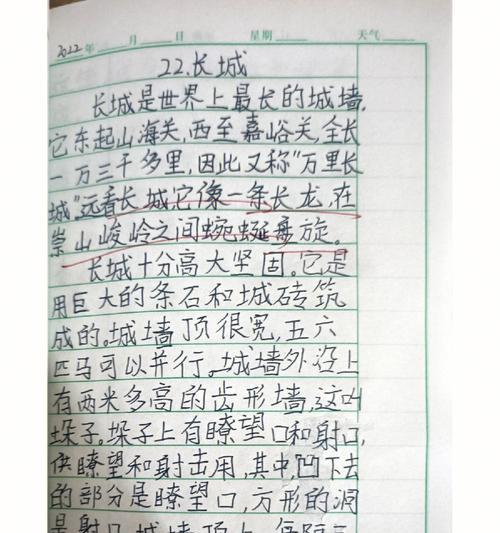 2022年 月 日 星期 天气
22.长城
长城是世界上最长的城墙,
它东起山海关,西至嘉峪关,全长
一万三千多里,因此又称"万里长
城"远看长城它像一条长龙,在
崇山峻岭之间蜿蜒旋。
长城十分高大坚固。它是
用巨大的条石和城砖筑
成的。城墙顶很宽,五六
匹马可以并行。城墙外沿上
有两米多高的齿形墙,这叫
垛子。垛子上有瞭望口和射口,
供瞭望和射击用,其中凹下去
的部分是瞭望口,方形的洞
是射口。城墙顶上,每隔三